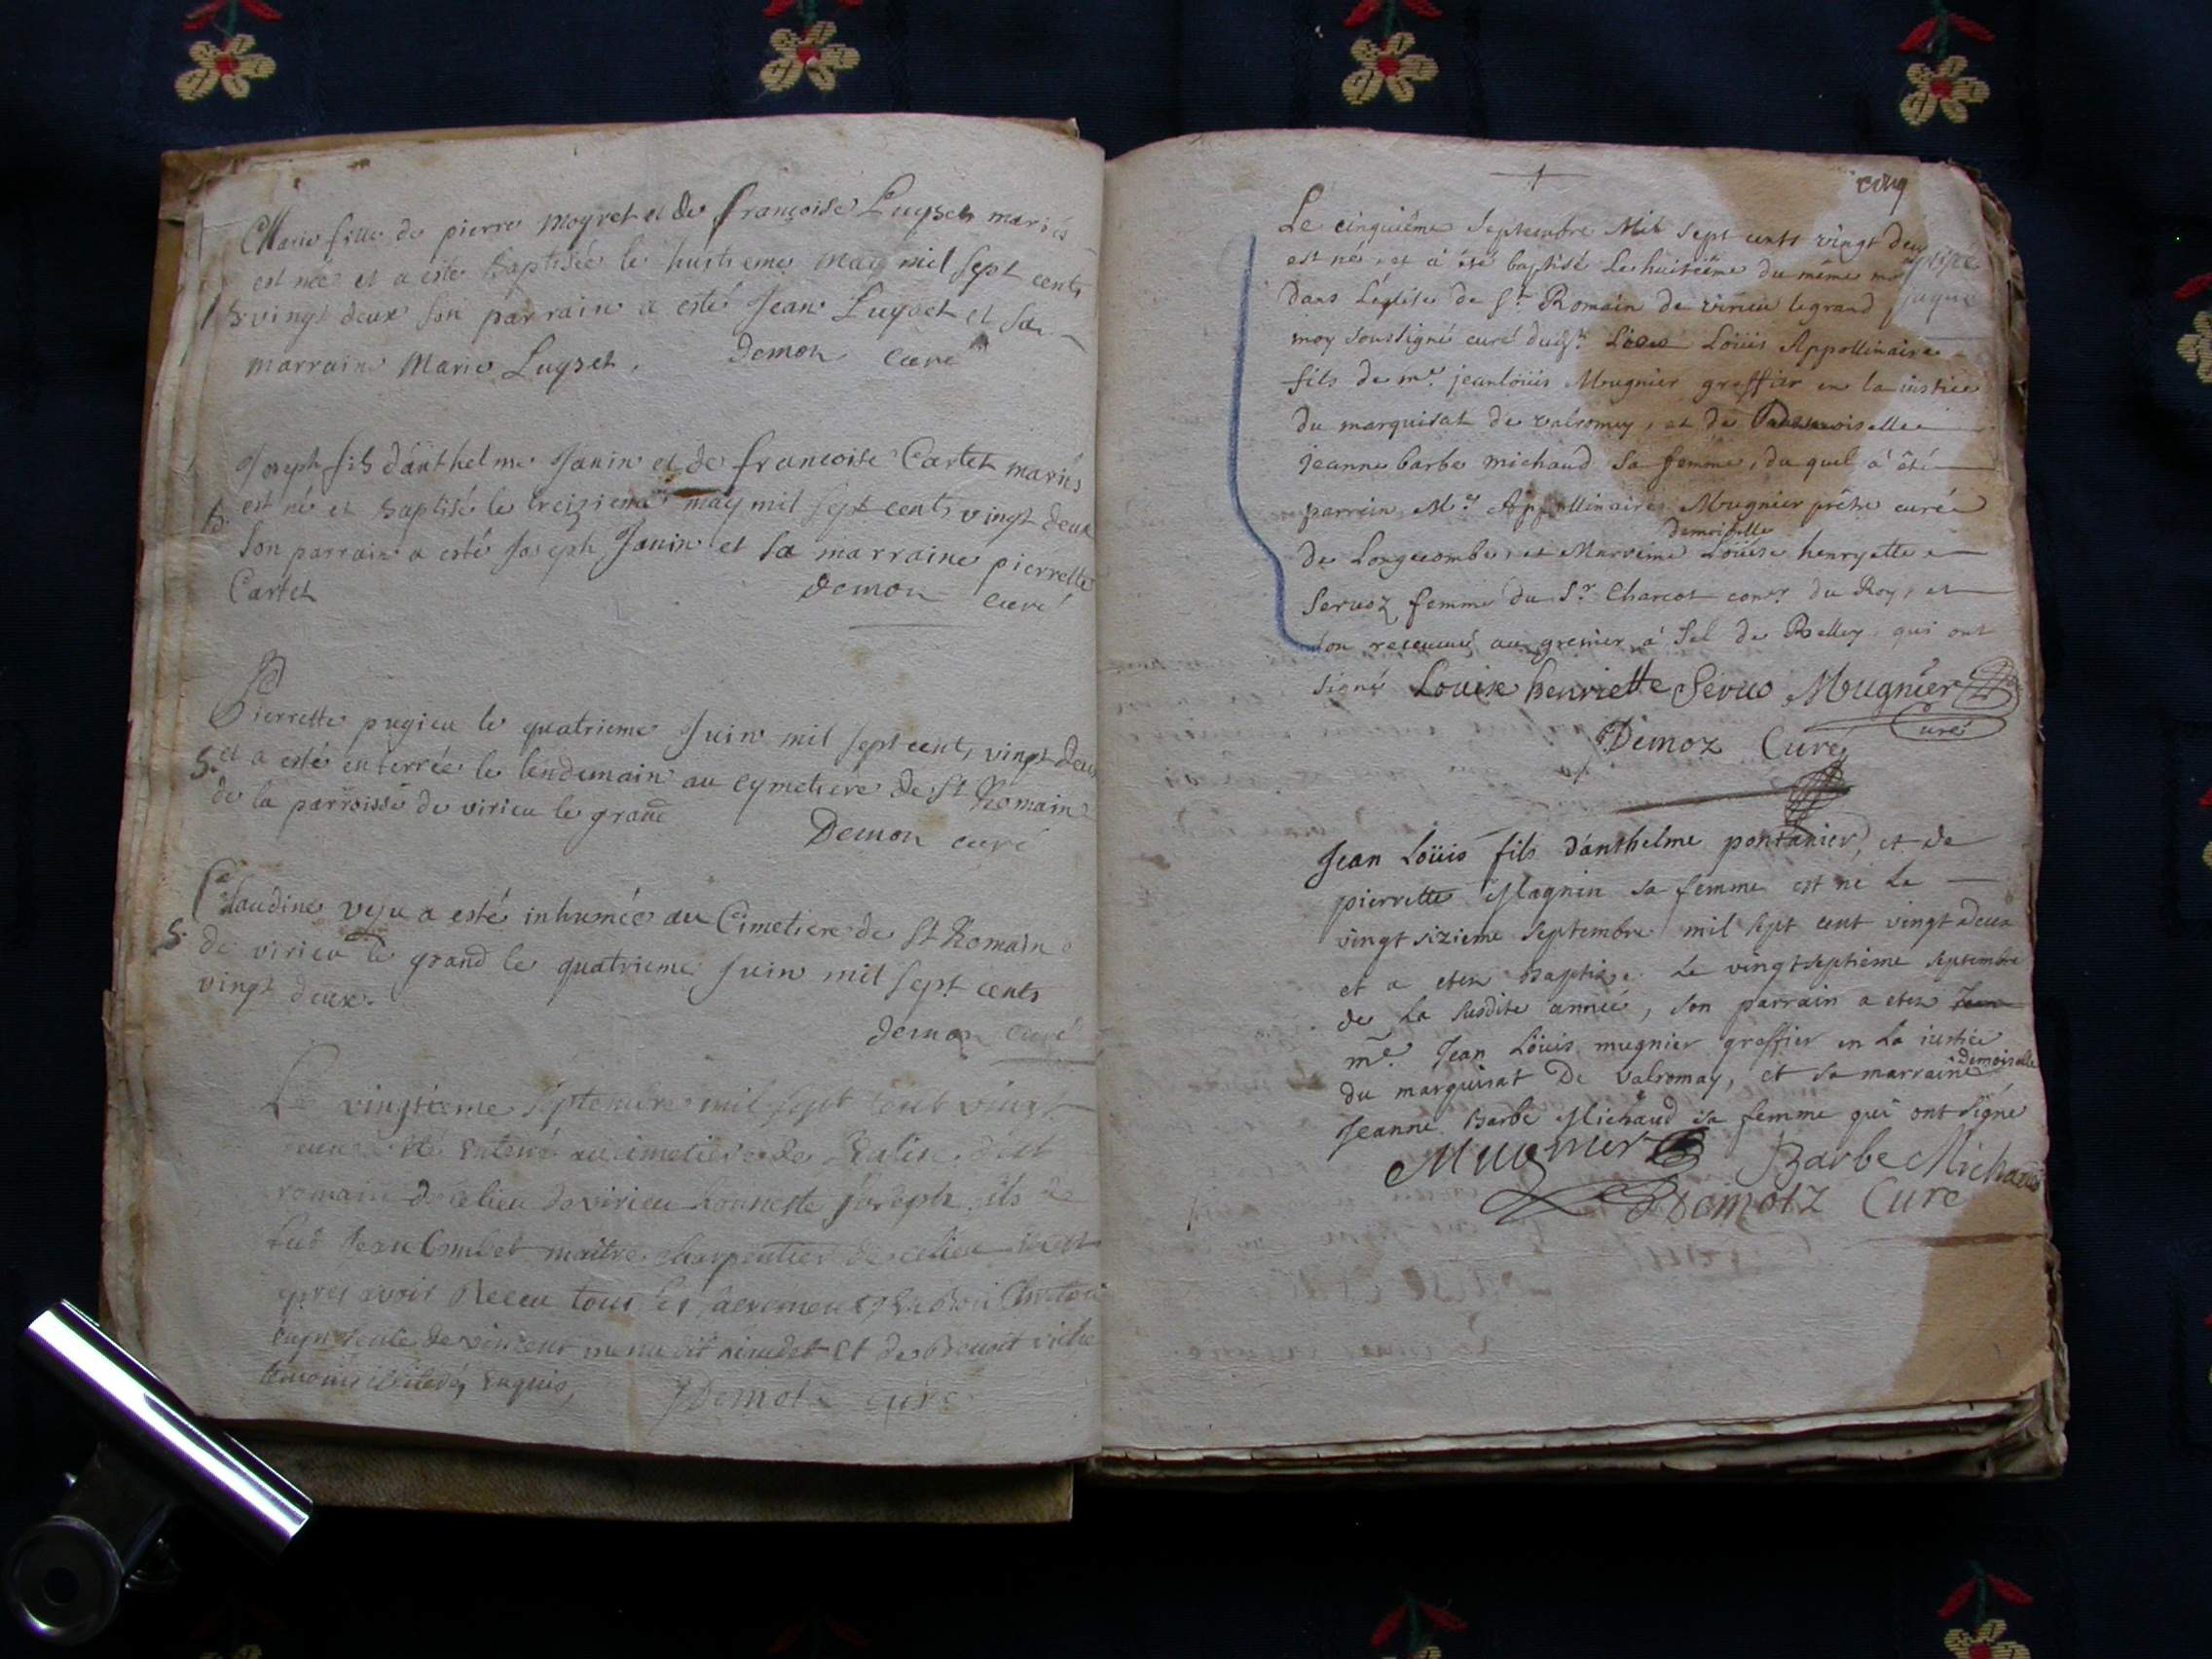 Marie fille de pierre moyret et de françoise Luyset mariés
est née et a esté baptisée le huitieme may mil sept cents
B vingt deux son parrain a esté Jean Luyset et sa
marraine Marie Luyset. Demoz curé
Joseph fils d'anthelme Janin et de francoise Cartet mariés
B est né et baptisé le treizieme may mil sept cents vingt deux
son parrain a esté Joseph Janin et sa marraine pierrette
Cartet Demoz curé
Pierrette pugieu le quatrieme Juin mil sept cents vingt deux
S. et a esté enterrée le lendemain au cymetiere de St Romain
de la parroisse de virieu le grand
Demoz curé
Claudine veju a esté inhumée au Cimetiere de St Romain
S. de virieu le grand le quatrieme Juin mil sept cents
vingt deux.
demoz curé
Le vingtieme septembre mil sept cent vingt
deux été enterré au cimetiere de
romain de ce lieu de virieu honneste Joseph fils de
feu Jean Combet maitre charpentier de ce lieu
apres avoir Receu tous les sacremens
et de Benoit
enquis, Demotz curé
cinq
Le cinquième Septembre Mil sept cents vingt deux
est né, et à été baptisé Le huitième du même mois
dans L'église de St. Romain de virieu le grand
moy soussigné curé dudt. Lieu Loüis Appollinaire
fils de me. jean loüis Mugnier greffier en la justice
du marquisat de valromey, et de Demoiselle
jeanne barbe michaud sa femme, du quel à été
parrain Mre Appollinaire Mugnier prêtre curé
demoiselle
de Longecombe, et Marreine Loüise henryette
Servoz femme du Sr. Charcot conser. du Roy, et
son receveur au grenier à Sel de Belley qui ont
signé Louise henriette Servo Mugnier
Curé
Demoz Curé
Jean Loüis fils d'anthelme pontanier, et de
pierrette Magnin sa femme est né Le
vingt sixieme septembre mil sept cent vingt deux
et a eter Baptize Le vingtseptieme septembre
de la susdite année, son parrain a eter Jean
me. Jean Loüis mugnier greffier en la justice
du marquisat De valromay, et sa marraine demoiselle
Jeanne Barbe Michaud sa femme qui ont signé
Mugnier Barbe Michaud
Demotz Curé